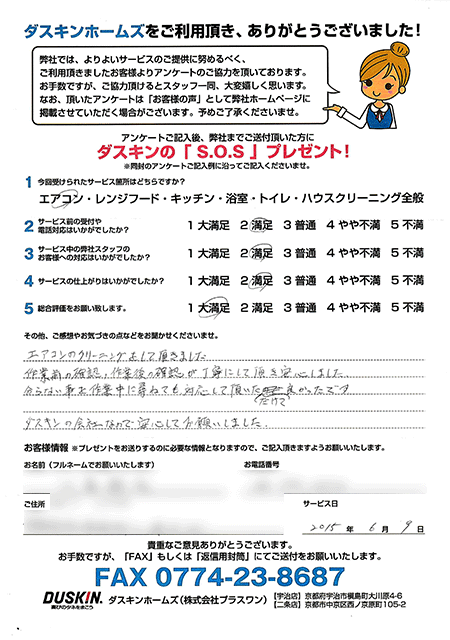 ダスキンホームズをご利用頂き、ありがとうございました!
弊社では、よりよいサービスのご提供に努めるべく、
ご利用頂きましたお客様よりアンケートのご協力を頂いております。
お手数ですが、ご協力頂けるとスタッフ一同、大変嬉しく思います。
なお、頂いたアンケートは「お客様の声」として弊社ホームページに
掲載させていただく場合がございます。予めご了承くださいませ。
アンケートご記入後、弊社までご送付頂いた方に
ダスキンの「 S.O.S 」プレゼント!
※同封のアンケートご記入例に沿ってご記入くださいませ。
1 今回受けられたサービス箇所はどちらですか?
エアコン・レンジフード・キッチン・浴室・トイレ・ハウスクリーニング全般
2 サービス前の受付や
電話対応はいかがでしたか? 1 大満足 2 満足 3 普通 4 やや不満 5 不満
3 サービス中の弊社スタッフの
お客様への対応はいかがでしたか? 1 大満足 2 満足 3 普通 4 やや不満 5 不満
4 サービスの仕上がりはいかがでしたか? 1 大満足 2 満足 3 普通 4 やや不満 5 不満
5 総合評価をお願い致します。 1 大満足 2 満足 3 普通 4 やや不満 5 不満
その他、ご感想やお気づきの点などをお聞かせくださいませ。
エアコンのクリーニングをして頂きました
作業前の確認、作業後の確認が丁寧にして頂き安心しました
分らない事を作業中に尋ねても対応して頂いた 良かったです
だけて
ダスキンの会社なので安心してお願いしました.
お客様情報 ※プレゼントをお送りするのに必要な情報となりますので、ご記入頂けますようお願いいたします。
お名前(フルネームでお願いいたします) お電話番号
ご住所 サービス日
2015 年 6 月 9 日
貴重なご意見ありがとうございます。
お手数ですが、「FAX」もしくは「返信用封筒」にてご送付をお願いいたします。
FAX 0774-23-8687
DUSKIN. 喜びのタネをまこう
ダスキンホームズ(株式会社プラスワン) 【宇治店】京都府宇治市槇島町大川原4-6
【二条店】京都市中京区西ノ京原町105-2